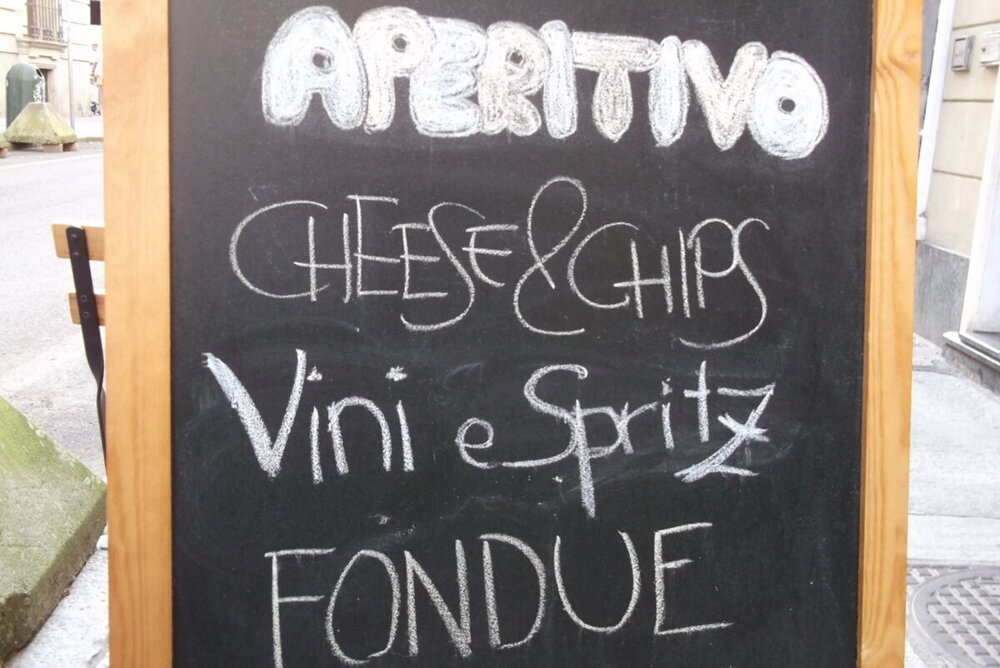 APERITIVO
CHEESE & CHIPS
Vini e Spritz
FONDUE